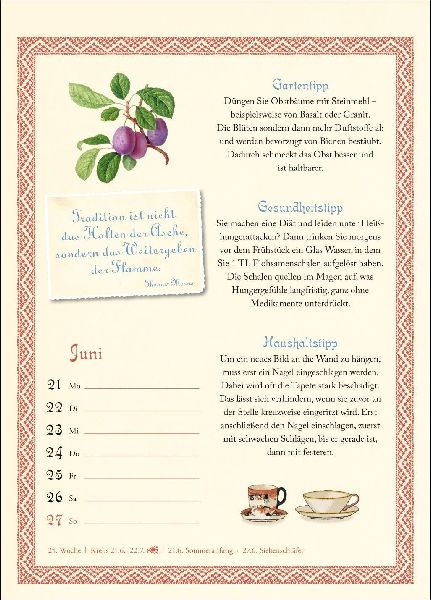 Gartentipp
Düngen Sie Obstbäume mit Steinmehl –
beispielsweise von Basalt oder Granit.
Die Blüten sondern dann mehr Duftstoffe ab
und werden bevorzugt von Bienen bestäubt.
Dadurch schmeckt das Obst besser und
ist haltbarer.
Tradition ist nicht
das Halten der Asche,
sondern das Weitergeben
der Flamme.
Thomas Morus
Gesundheitstipp
Sie machen eine Diät und leiden unter Heiß-
hungerattacken? Dann trinken Sie morgens
vor dem Frühstück ein Glas Wasser, in dem
Sie 1 TL Flohsamenschalen aufgelöst haben.
Die Schalen quellen im Magen auf, was
Hungergefühle langfristig, ganz ohne
Medikamente unterdrückt.
Haushaltstipp
Um ein neues Bild an die Wand zu hängen,
muss erst ein Nagel eingeschlagen werden.
Dabei wird oft die Tapete stark beschädigt.
Das lässt sich verhindern, wenn sie zuvor an
der Stelle kreuzweise eingeritzt wird. Erst
anschließend den Nagel einschlagen, zuerst
mit schwachen Schlägen, bis er gerade ist,
dann mit festeren.
Juni
21 Mo
22 Di
23 Mi
24 Do
25 Fr
26 Sa
27 So
25. Woche | Krebs 21.6. - 22.7. | 21.6. Sommeranfang · 27.6. Siebenschläfer